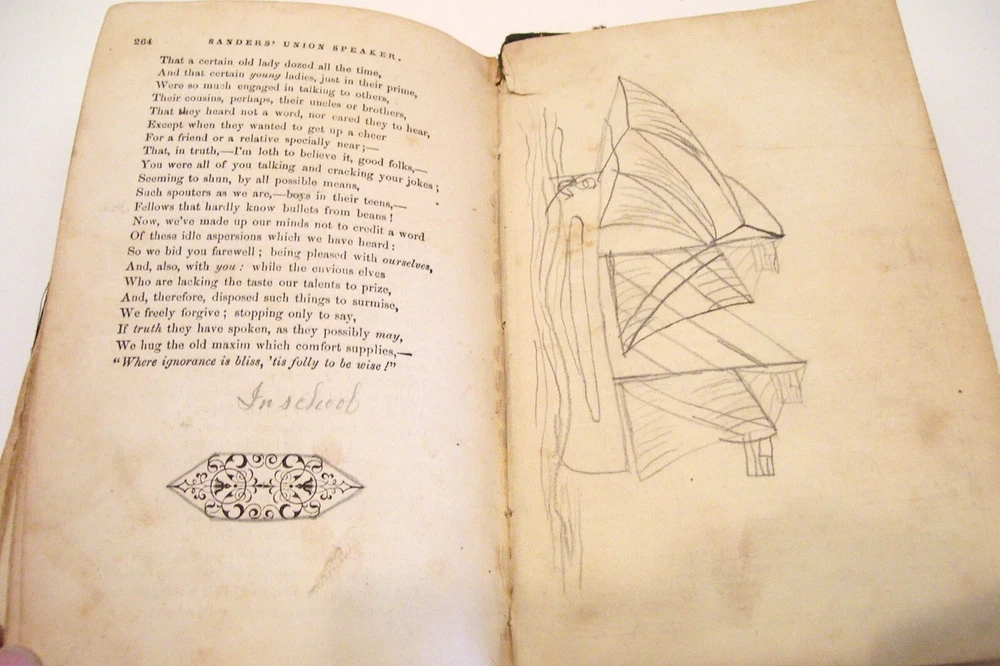 264 SANDERS' UNION SPEAKER.
That a certain old lady dozed all the time,
And that certain young ladies, just in their prime,
Were so much engaged in talking to others,
Their cousins, perhaps, their uncles or brothers,
That they heard not a word, nor cared they to hear,
Except when they wanted to get up a cheer
For a friend or a relative specially near;—
That, in truth,—I'm loth to believe it, good folks,—
You were all of you talking and cracking your jokes;
Seeming to shun, by all possible means,
Such spouters as we are,—boys in their teens,—
Fellows that hardly know bullets from beans!
Now, we've made up our minds not to credit a word
Of these idle aspersions which we have heard:
So we bid you farewell; being pleased with ourselves,
And, also, with you: while the envious elves
Who are lacking the taste our talents to prize,
And, therefore, disposed such things to surmise,
We freely forgive; stopping only to say,
If truth they have spoken, as they possibly may,
We hug the old maxim which comfort supplies,—
"Where ignorance is bliss, 'tis folly to be wise!"
In school